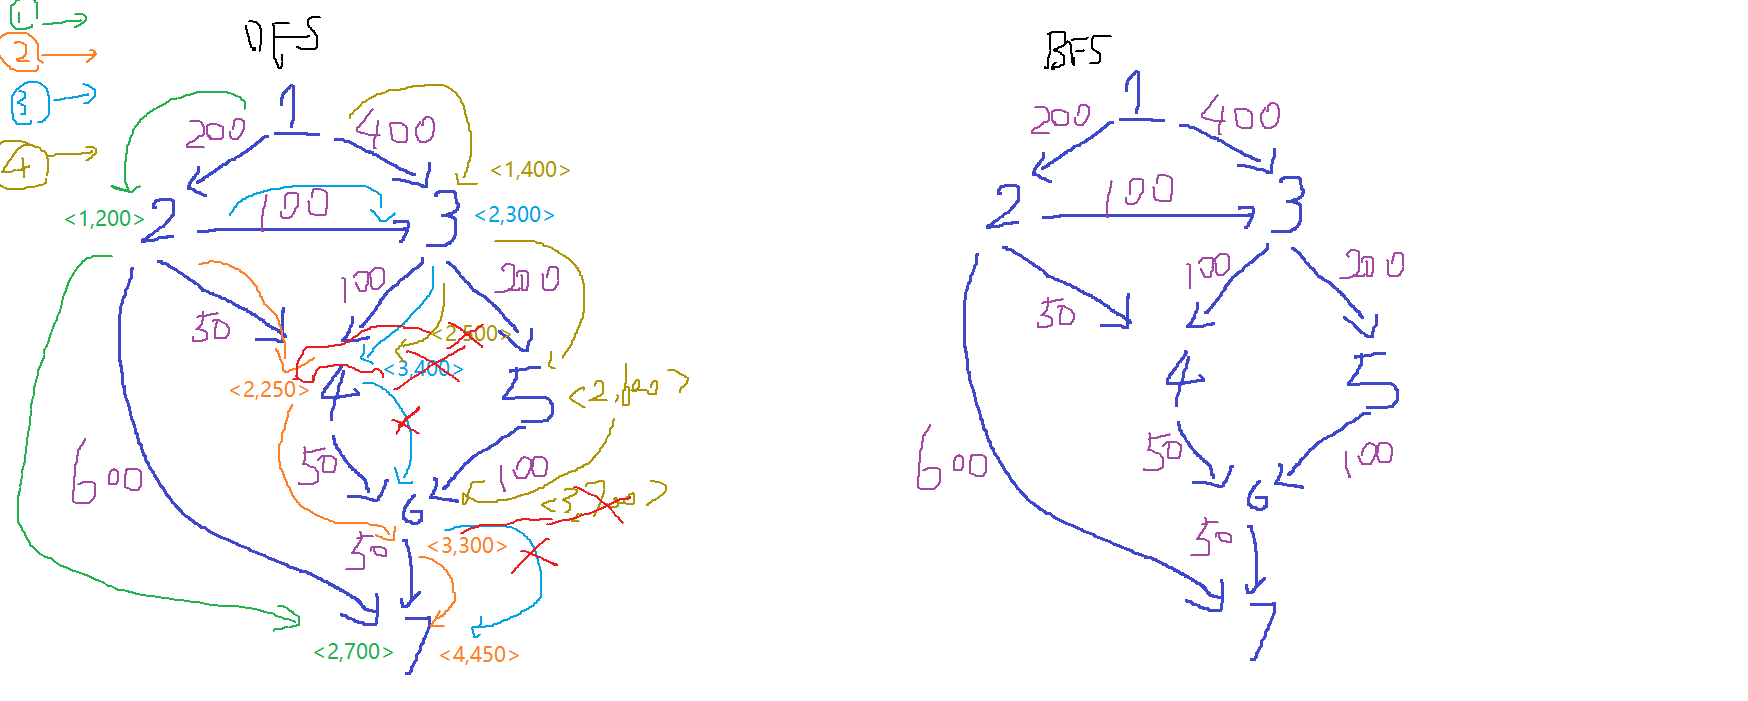 1
2
3
4
DFS
1
200
400
<1,400>
<1,200>
2
100
3
<2,300>
50
100
200
<2,500>
<3,400>
<2,250>
4
5
<2,600>
600
50
100
<3,700>
6
50
<3,300>
<2,700>
7
<4,450>
BFS
1
200
400
2
100
3
50
100
200
4
5
600
50
100
6
50
7